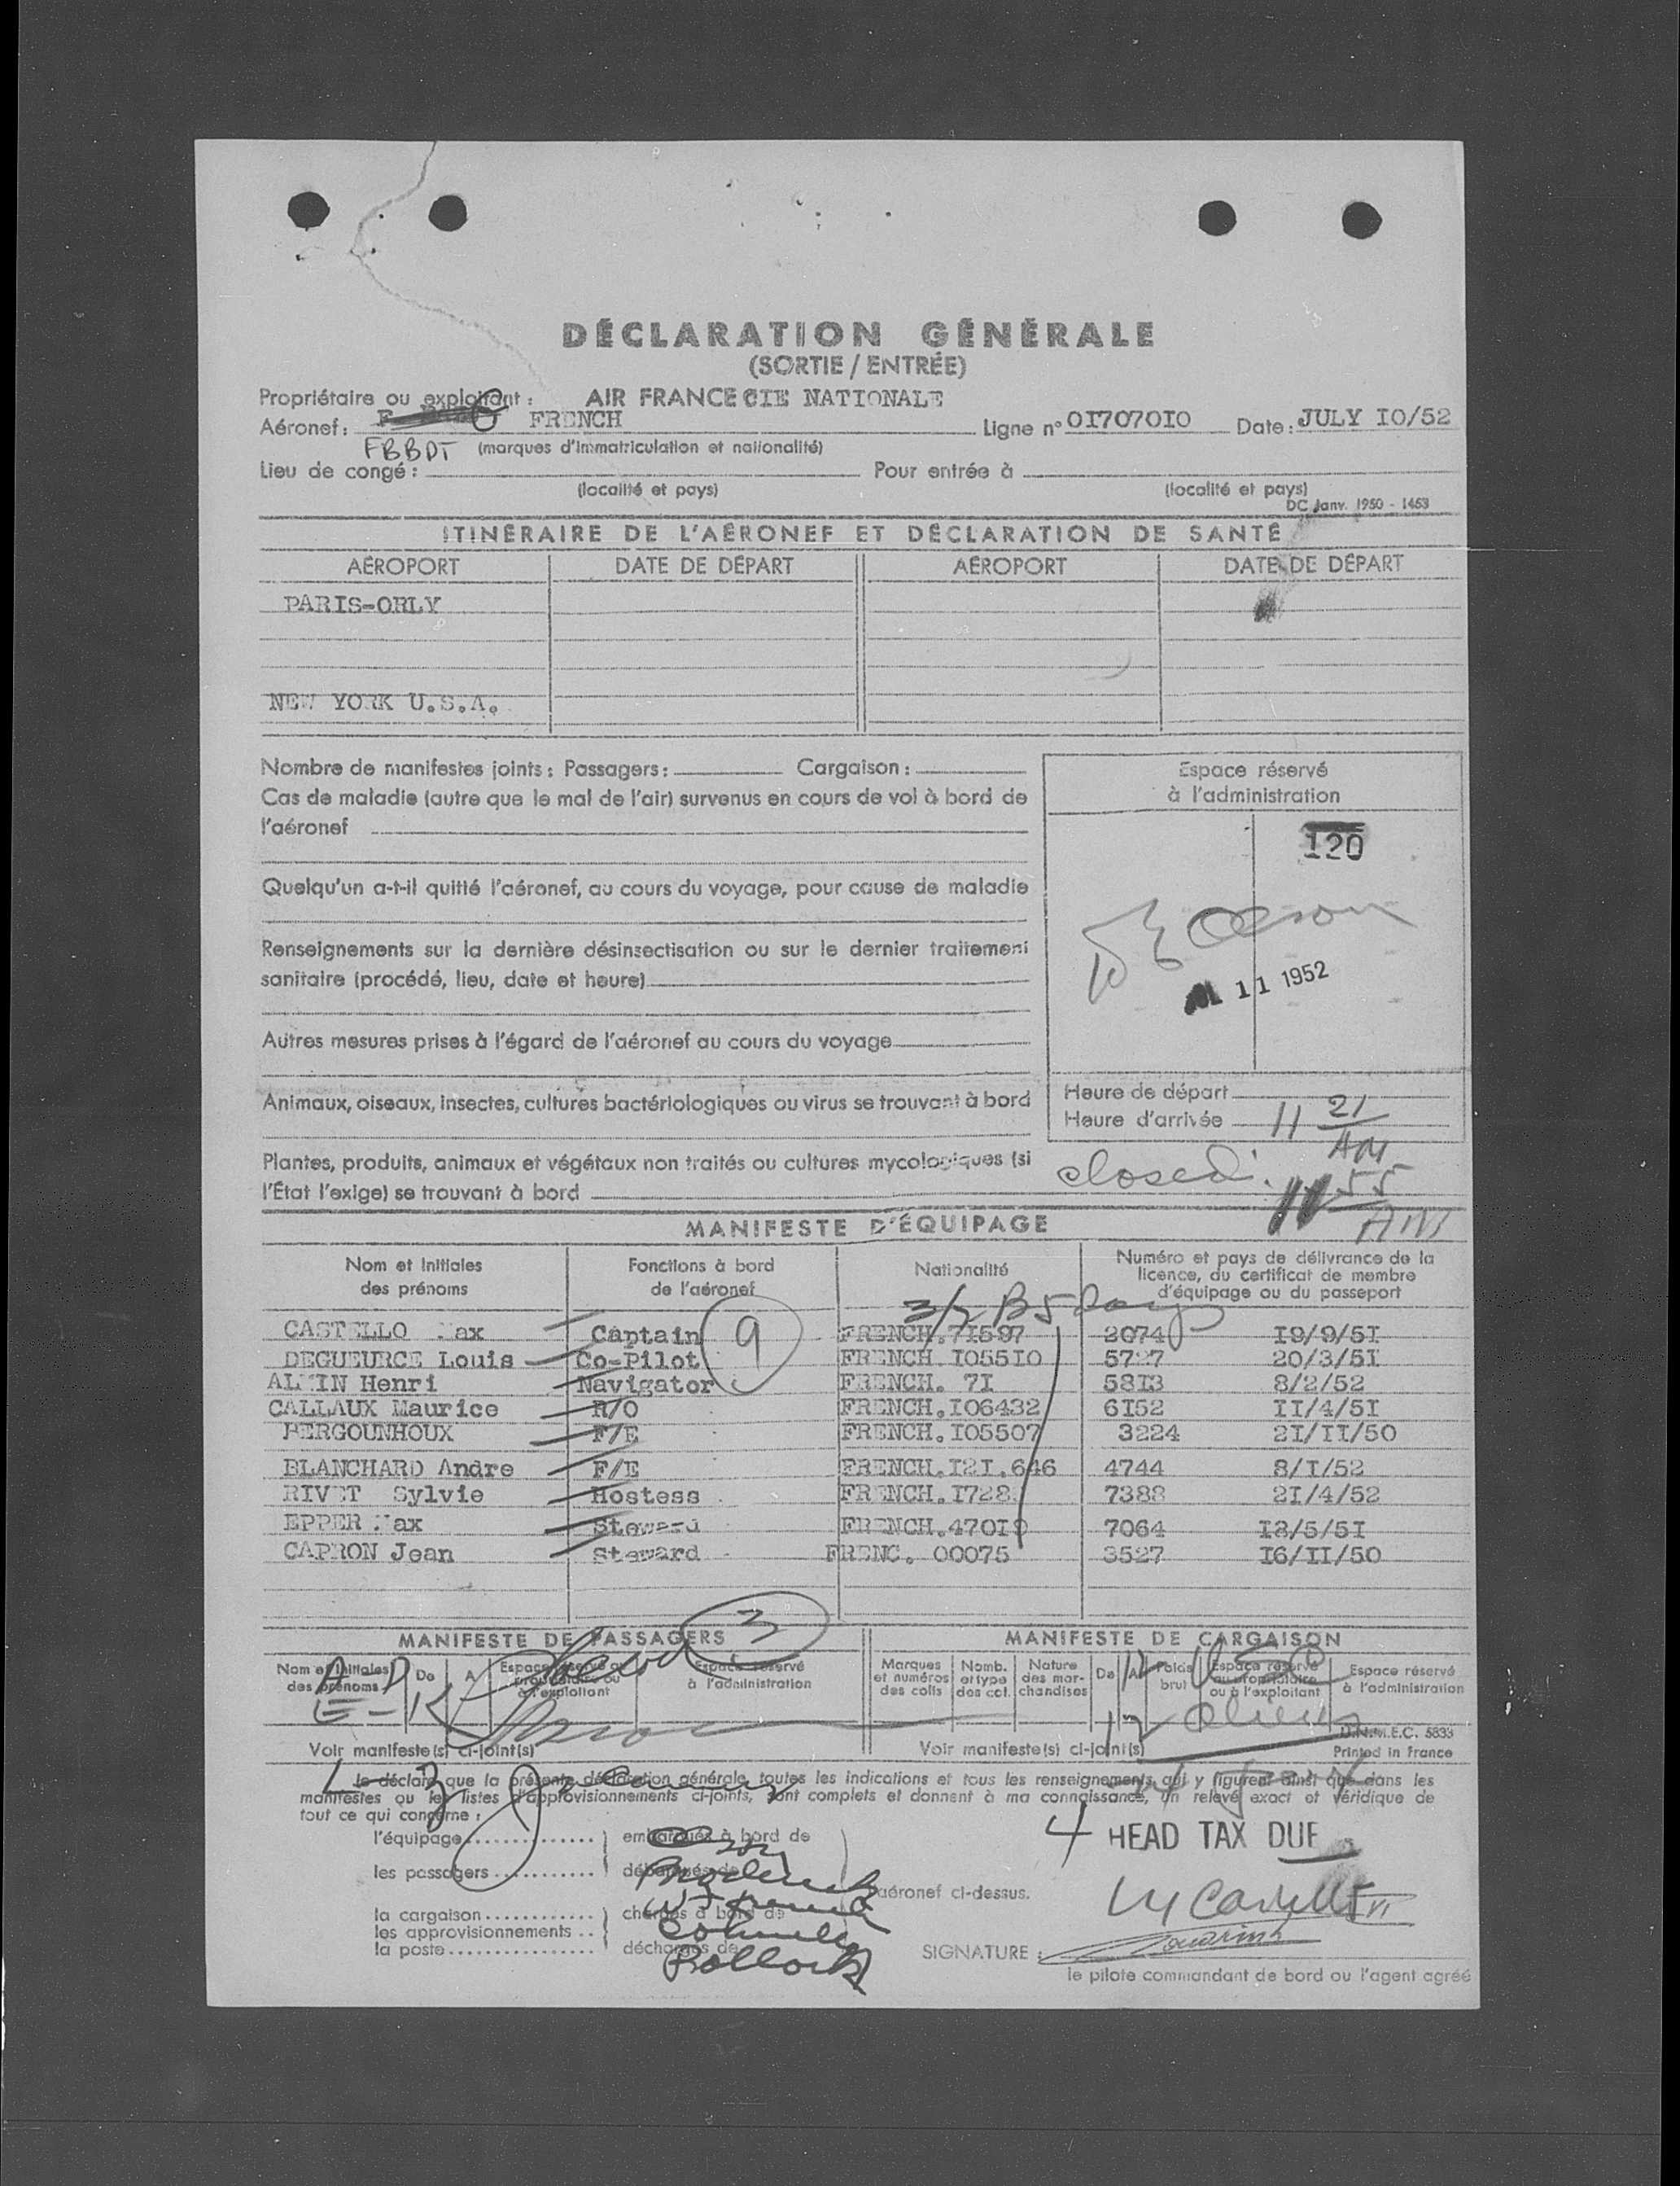 DÉCLARATION GÉNÉRALE
(SORTIE / ENTRÉE)
Propriétaire ou exploitant : AIR FRANCE CIE NATIONALE
Aéronef : FRENCH Ligne n° 01707010 Date : JULY 10/52
FBBDT (marques d'immatriculation et nationalité)
Lieu de congé : Pour entrée à
(localité et pays) (localité et pays)
DC Janv. 1950 - 1453
ITINÉRAIRE DE L'AÉRONEF ET DÉCLARATION DE SANTÉ
AÉROPORT DATE DE DÉPART AÉROPORT DATE DE DÉPART
PARIS-ORLY
NEW YORK U.S.A.
Nombre de manifestes joints : Passagers : Cargaison :
Cas de maladie (autre que le mal de l'air) survenus en cours de vol à bord de
l'aéronef
Quelqu'un a-t-il quitté l'aéronef, au cours du voyage, pour cause de maladie
Renseignements sur la dernière désinsectisation ou sur le dernier traitement
sanitaire (procédé, lieu, date et heure)
Autres mesures prises à l'égard de l'aéronef au cours du voyage
Animaux, oiseaux, insectes, cultures bactériologiques ou virus se trouvant à bord
Plantes, produits, animaux et végétaux non traités ou cultures mycologiques (si
l'État l'exige) se trouvant à bord
Espace réservé
à l'administration
120
11 1952
Heure de départ
Heure d'arrivée 11 21 AM
closed. 11 55 AM
MANIFESTE D'ÉQUIPAGE
Nom et Initiales des prénoms
Fonctions à bord de l'aéronef
Nationalité
Numéro et pays de délivrance de la licence, du certificat de membre d'équipage ou du passeport
9
CASTELLO Max Captain FRENCH.71597 2074 19/9/51
DEGUEURCE Louis Co-Pilot FRENCH. 105510 5727 20/3/51
Henri Navigator FRENCH. 71 5813 8/2/52
CALLAUX Maurice R/O FRENCH.106432 6152 11/4/51
BERGOUNHOUX F/E FRENCH.105507 3224 21/11/50
BLANCHARD Andre F/E FRENCH.121.646 4744 8/1/52
RIVET Sylvie Hostess FRENCH.1728 7388 21/4/52
EPPER Max Steward FRENCH.47019 7064 18/5/51
CAPRON Jean Steward FRENC. 00075 3527 16/11/50
MANIFESTE DE PASSAGERS 3 MANIFESTE DE CARGAISON
Nom et Initiales des prénoms
De
A
Espace réservé au propriétaire ou à l'exploitant
Espace réservé à l'administration
Marques et numéros des colis
Nomb. et type des col.
Nature des marchandises
De
A
Poids brut
Espace réservé au propriétaire ou à l'exploitant
Espace réservé à l'administration
A-D
E-K
12 aliens
U.N.M.E.C. 5833
Voir manifeste(s) ci-joint(s) Voir manifeste(s) ci-joint(s) Printed in France
Je déclare que la présente déclaration générale, toutes les indications et tous les renseignements qui y figurent ainsi que dans les
manifestes ou les listes d'approvisionnements ci-joints, sont complets et donnent à ma connaissance, un relevé exact et véridique de
tout ce qui concerne :
l'équipage embarqués à bord de
les passagers débarqués de
l'aéronef ci-dessus.
la cargaison chargés à bord de
les approvisionnements
la poste déchargés de
Pollock
4 HEAD TAX DUE
SIGNATURE :
le pilote commandant de bord ou l'agent agréé